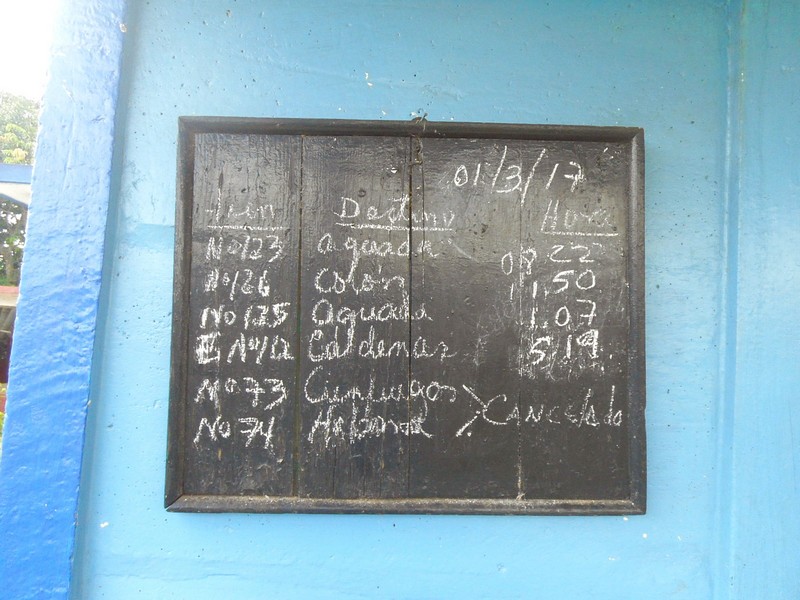 01/3/17
Tren Destino Hora
No 123 Aguada 08.22
No 126 Colón 11.50
No 125 Aguada 1.07
E No 412 Cárdenas 5.19
No 73 Cienfuegos
No 74 Habana > Cancelado